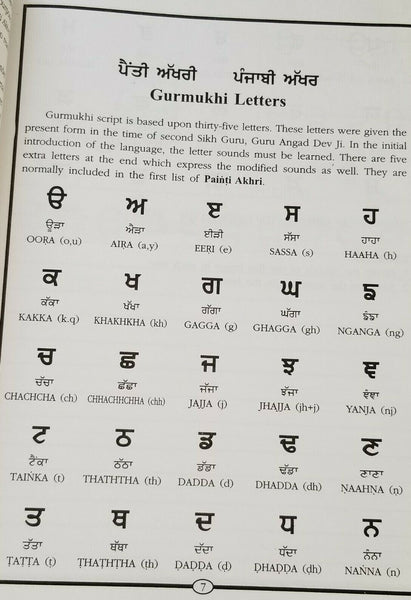 ਪੈਂਤੀ ਅੱਖਰੀ ਪੰਜਾਬੀ ਅੱਖਰ
Gurmukhi Letters
Gurmukhi script is based upon thirty-five letters. These letters were given the
present form in the time of second Sikh Guru, Guru Angad Dev Ji. In the initial
introduction of the language, the letter sounds must be learned. There are five
extra letters at the end which express the modified sounds as well. They are
normally included in the first list of Paiṅti Akhri.
ੳ ਅ ੲ ਸ ਹ
ਊੜਾ ਐੜਾ ਈੜੀ ਸੱਸਾ ਹਾਹਾ
OORA (o,u) AIRA (a,y) EERI (e) SASSA (s) HAAHA (h)
ਕ ਖ ਗ ਘ ਙ
ਕੱਕਾ ਖੱਖਾ ਗੱਗਾ ਘੱਗਾ ਙੰਙਾ
KAKKA (k.q) KHAKHKHA (kh) GAGGA (g) GHAGGA (gh) NGANGA (ng)
ਚ ਛ ਜ ਝ ਞ
ਚੱਚਾ ਛੱਛਾ ਜੱਜਾ ਝੱਜਾ ਞੰਞਾ
CHACHCHA (ch) CHHACHHCHHA (chh) JAJJA (j) JHAJJA (jh+j) YANJA (nj)
ਟ ਠ ਡ ਢ ਣ
ਟੈਂਕਾ ਠੱਠਾ ਡੱਡਾ ਢੱਡਾ ਣਾਣਾ
TAIṄKA (t) THATHTHA (th) DADDA (d) DHADDA (dh) ṆAAHṆA (ṇ)
ਤ ਥ ਦ ਧ ਨ
ਤੱਤਾ ਥੱਥਾ ਦੱਦਾ ਧੱਦਾ ਨੰਨਾ
ṬAṬṬA (ṭ) ṬHAṬHṬHA (ṭh) ḌAḌḌA (ḍ) ḌHAḌḌA (ḍh) NAṄNA (n)
7